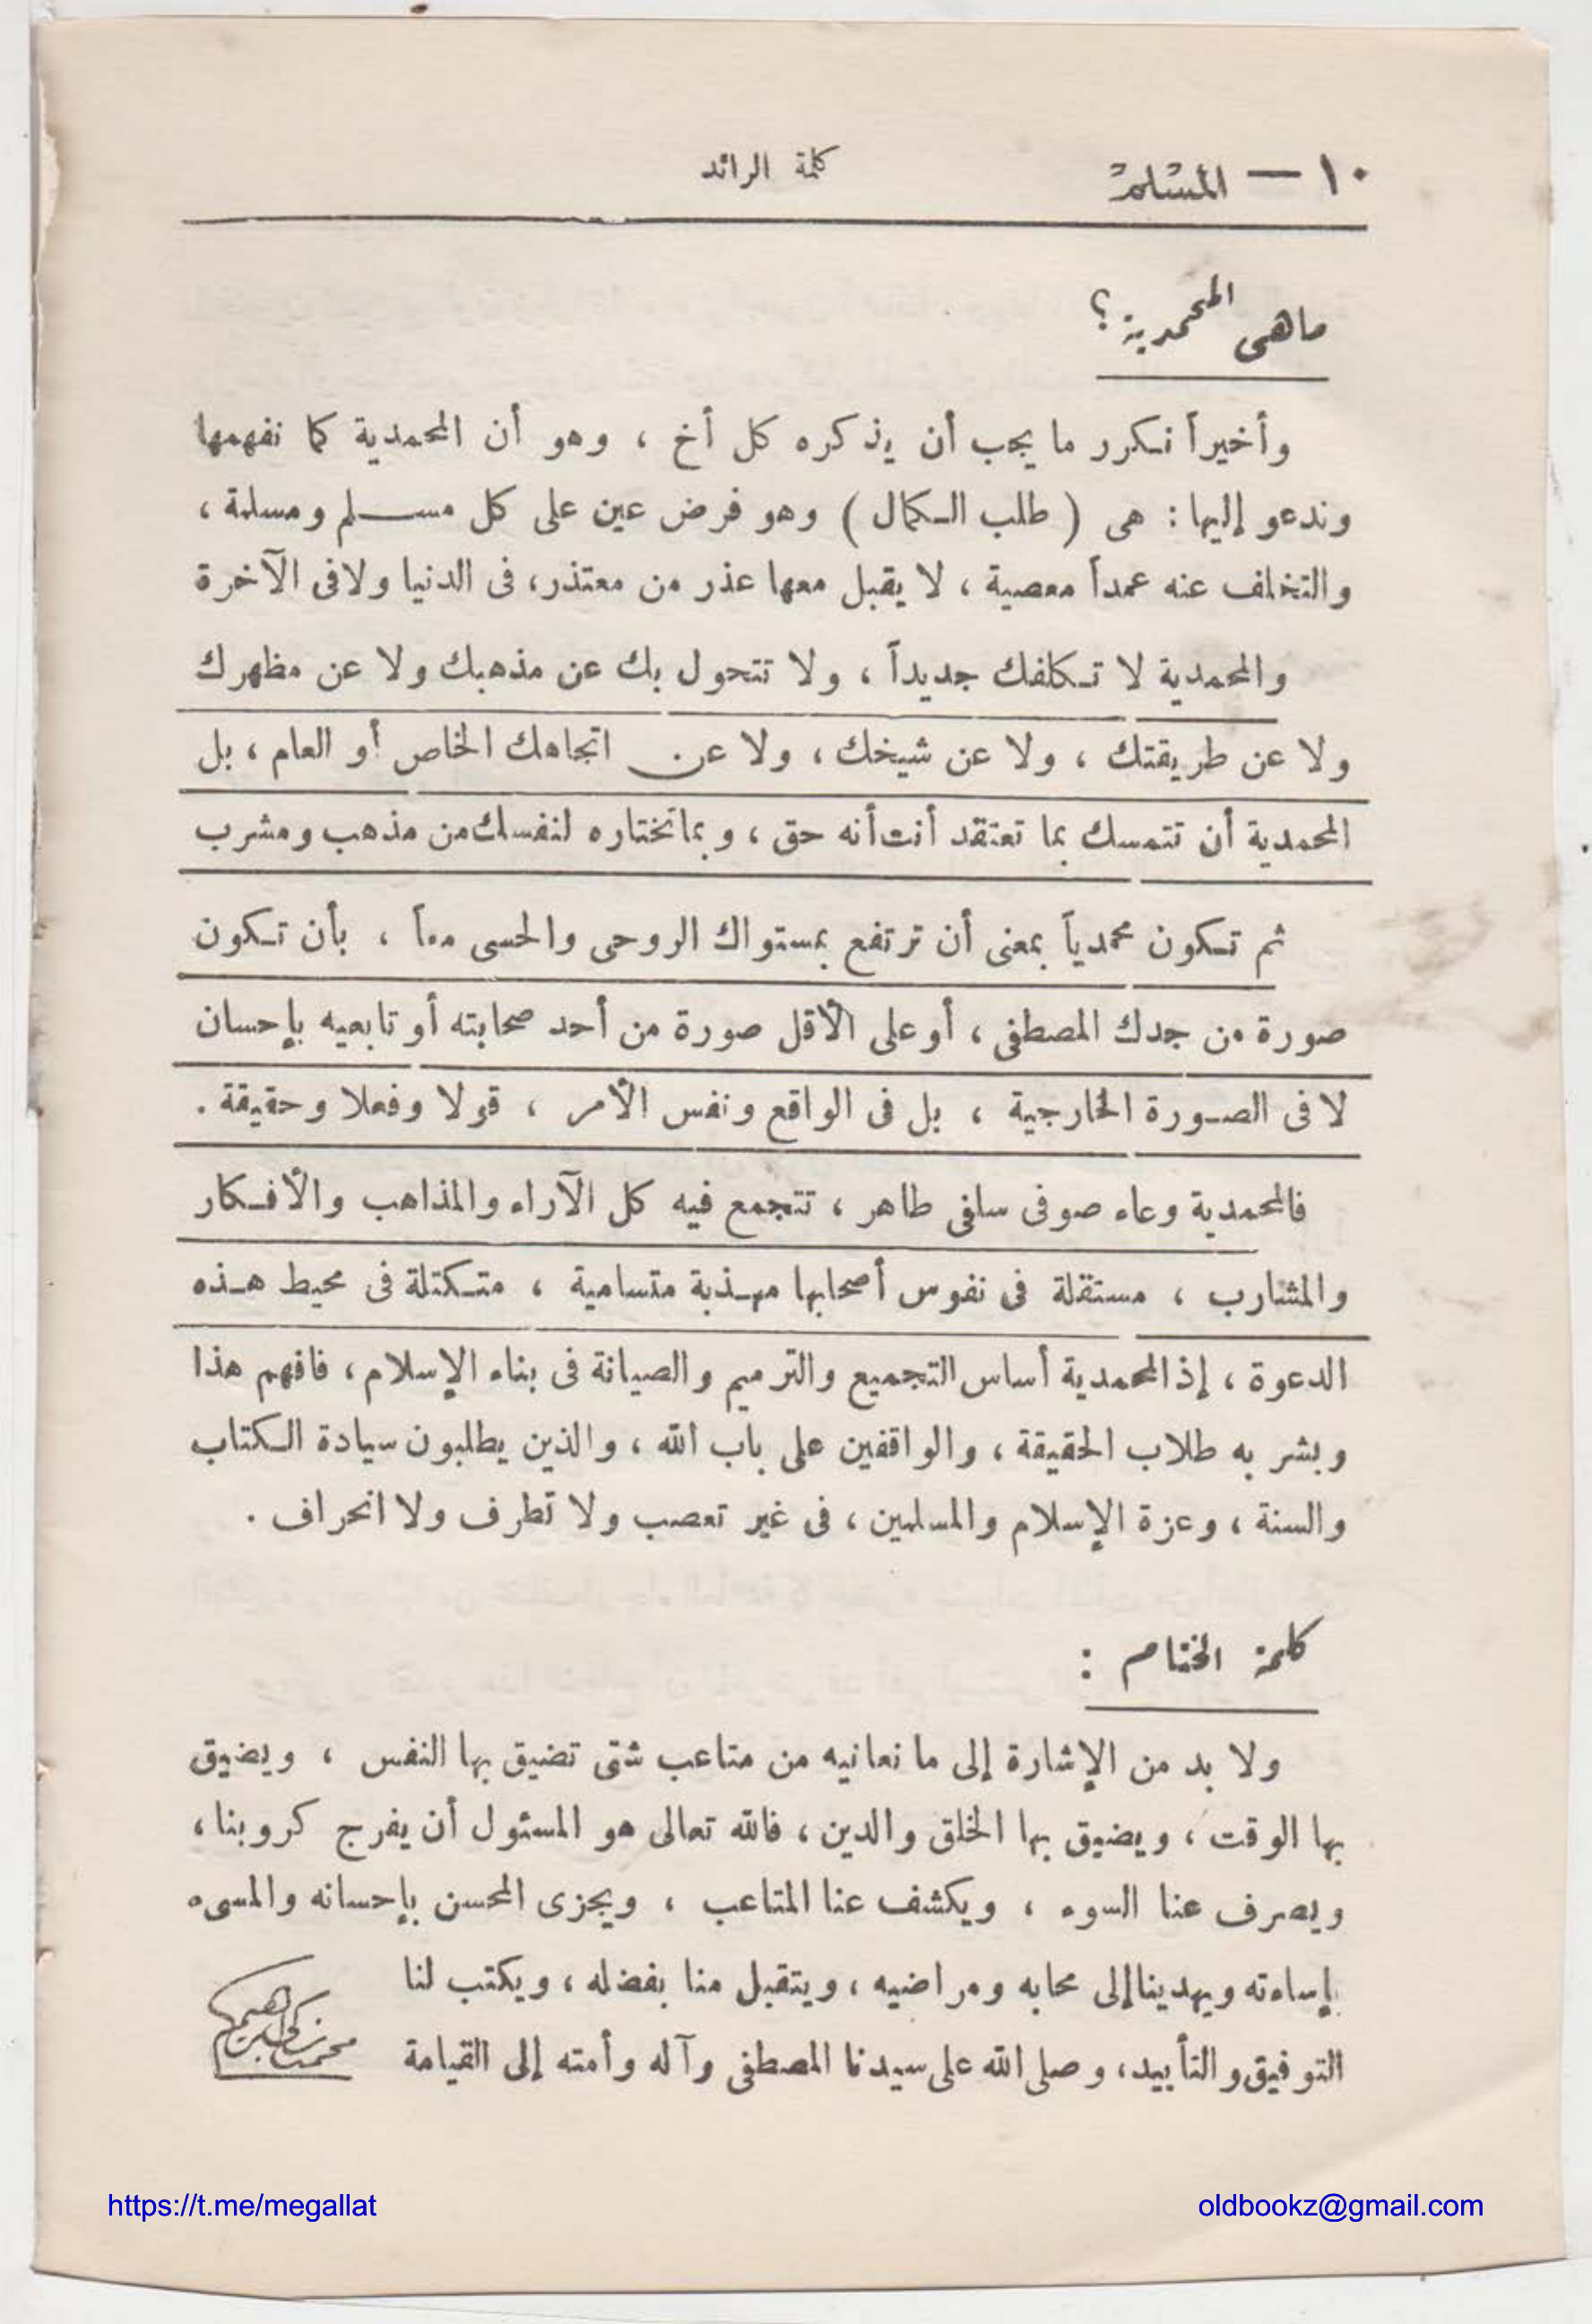 ١٠ — المسلم
كلمة الرائد
ماهى المحمدية؟
وأخيراً نكرر ما يجب أن يذكره كل أخ ، وهو أن المحمدية كما نفهمها
وندعو إليها : هى ( طلب الكمال ) وهو فرض عين على كل مسلم ومسلمة ،
والتخلف عنه عمداً معصية ، لا يقبل معها عذر من معتذر، فى الدنيا ولا فى الآخرة
والمحمدية لا تكلفك جديداً ، ولا تتحول بك عن مذهبك ولا عن مظهرك
ولا عن طريقتك ، ولا عن شيخك ، ولا عن اتجاهك الخاص أو العام ، بل
المحمدية أن تتمسك بما تعتقد أنت أنه حق ، وبما تختاره لنفسك من مذهب ومشرب
ثم تكون محمدياً بمعنى أن ترتفع بمستواك الروحى والحسى معاً ، بأن تكون
صورة من جدك المصطفى ، أو على الأقل صورة من أحد صحابته أو تابعيه بإحسان
لا فى الصورة الخارجية ، بل فى الواقع ونفس الأمر ، قولا وفعلا وحقيقة .
فالمحمدية وعاء صوفى سلفى طاهر ، تتجمع فيه كل الآراء والمذاهب والأفكار
والمشارب ، مستقلة فى نفوس أصحابها مهذبة متسامية ، متكتلة فى محيط هذه
الدعوة ، إذ المحمدية أساس التجميع والترميم والصيانة فى بناء الإسلام ، فافهم هذا
وبشر به طلاب الحقيقة ، والواقفين على باب الله ، والذين يطلبون سيادة الكتاب
والسنة ، وعزة الإسلام والمسلمين ، فى غير تعصب ولا تطرف ولا انحراف .
كلمة الختام :
ولا بد من الإشارة إلى ما نعانيه من متاعب شتى تضيق بها النفس ، ويضيق
بها الوقت ، ويضيق بها الخلق والدين ، فالله تعالى هو المسئول أن يفرج كروبنا ،
ويصرف عنا السوء ، ويكشف عنا المتاعب ، ويجزى المحسن بإحسانه والمسىء
بإساءته ويهدينا إلى محابه ومراضيه ، ويتقبل منا بفضله ، ويكتب لنا
التوفيق والتأييد ، وصلى الله على سيدنا المصطفى وآله وأمته إلى القيامة
محمد زكى إبراهيم
https://t.me/megallat
oldbookz@gmail.com